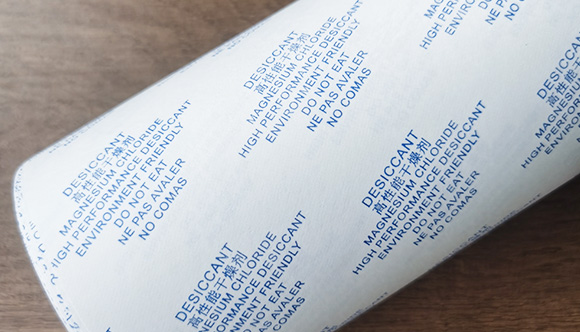 DESICCANT
高性能干燥剂
MAGNESIUM CHLORIDE
HIGH PERFORMANCE DESICCANT
ENVIRONMENT FRIENDLY
DO NOT EAT
NE PAS AVALER
NO COMAS
HIGH PERFORMANCE
ENVIRONMENT FRIENDLY
DO NOT EAT
NE PAS AVALER
NO COMAS
DESICCANT
高性能干燥剂
MAGNESIUM CHLORIDE
HIGH PERFORMANCE DESICCANT
ENVIRONMENT FRIENDLY
DO NOT EAT
NE PAS AVALER
NO COMAS
DESICCANT
高性能干燥剂
MAGNESIUM CHLORIDE
HIGH PERFORMANCE DESICCANT
ENVIRONMENT FRIENDLY
DO NOT EAT
NE PAS AVALER
NO COMAS
DESICCANT
高性能干燥剂
MAGNESIUM CHLORIDE
HIGH PERFORMANCE DESICCANT
ENVIRONMENT FRIENDLY
DO NOT EAT
NE PAS AVALER
NO COMAS